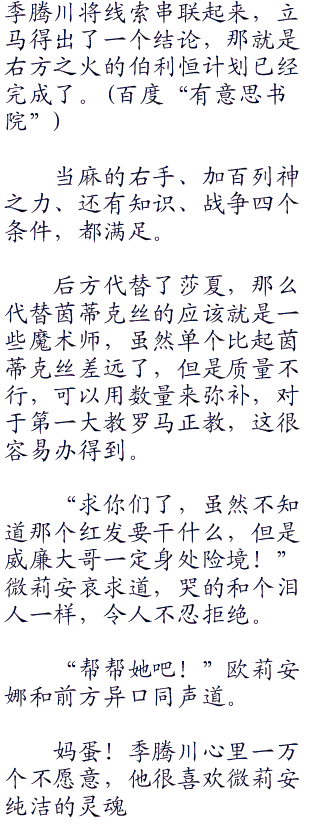 季腾川将线索串联起来，立
马得出了一个结论，那就是
右方之火的伯利恒计划已经
完成了。(百度“有意思书
院”)
当麻的右手、加百列神
之力、还有知识、战争四个
条件，都满足。
后方代替了莎夏，那么
代替茵蒂克丝的应该就是一
些魔术师，虽然单个比起茵
蒂克丝差远了，但是质量不
行，可以用数量来弥补，对
于第一大教罗马正教，这很
容易办得到。
“求你们了，虽然不知
道那个红发要干什么，但是
威廉大哥一定身处险境！”
微莉安哀求道，哭的和个泪
人一样，令人不忍拒绝。
“帮帮她吧！”欧莉安
娜和前方异口同声道。
妈蛋！季腾川心里一万
个不愿意，他很喜欢微莉安
纯洁的灵魂